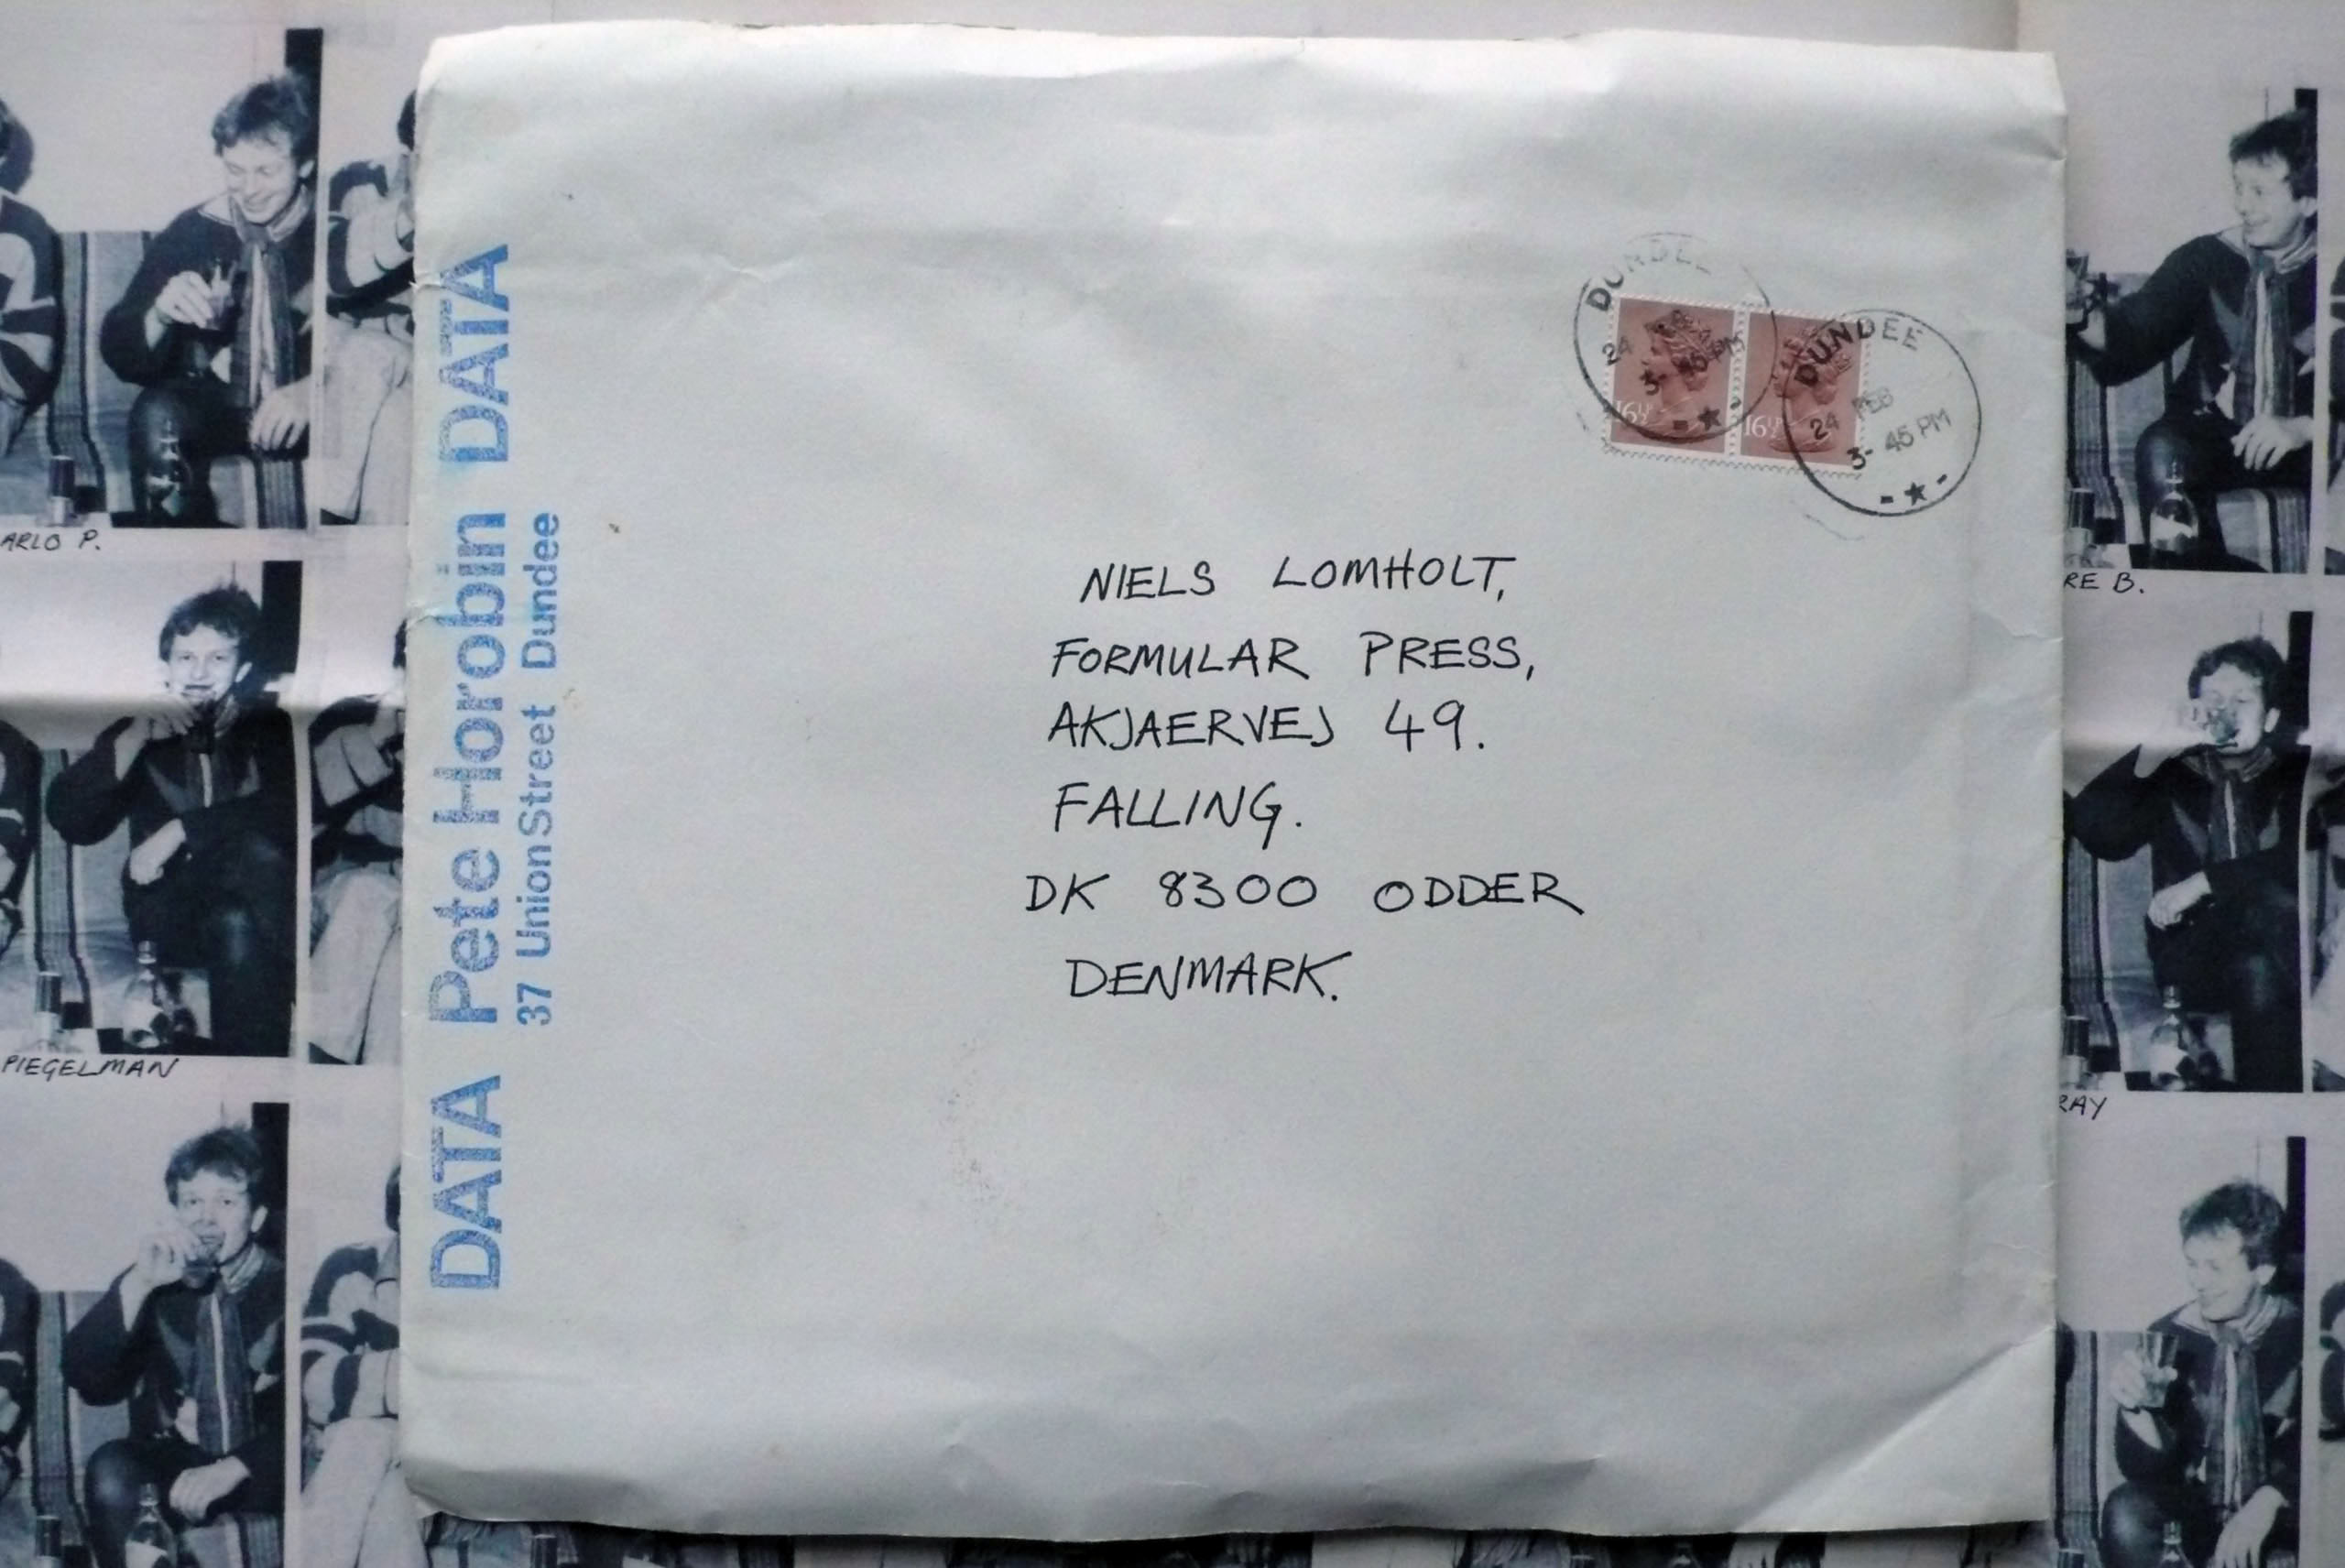 DATA Pete Horobin DATA
37 Union Street Dundee
DUNDEE
24
3- 45 PM
16½
16½
DUNDEE
24 FEB
3- 45 PM
NIELS LOMHOLT,
FORMULAR PRESS,
AKJAERVEJ 49.
FALLING.
DK 8300 ODDER
DENMARK.
ARLO P.
PIEGELMAN
RE B.
RAY